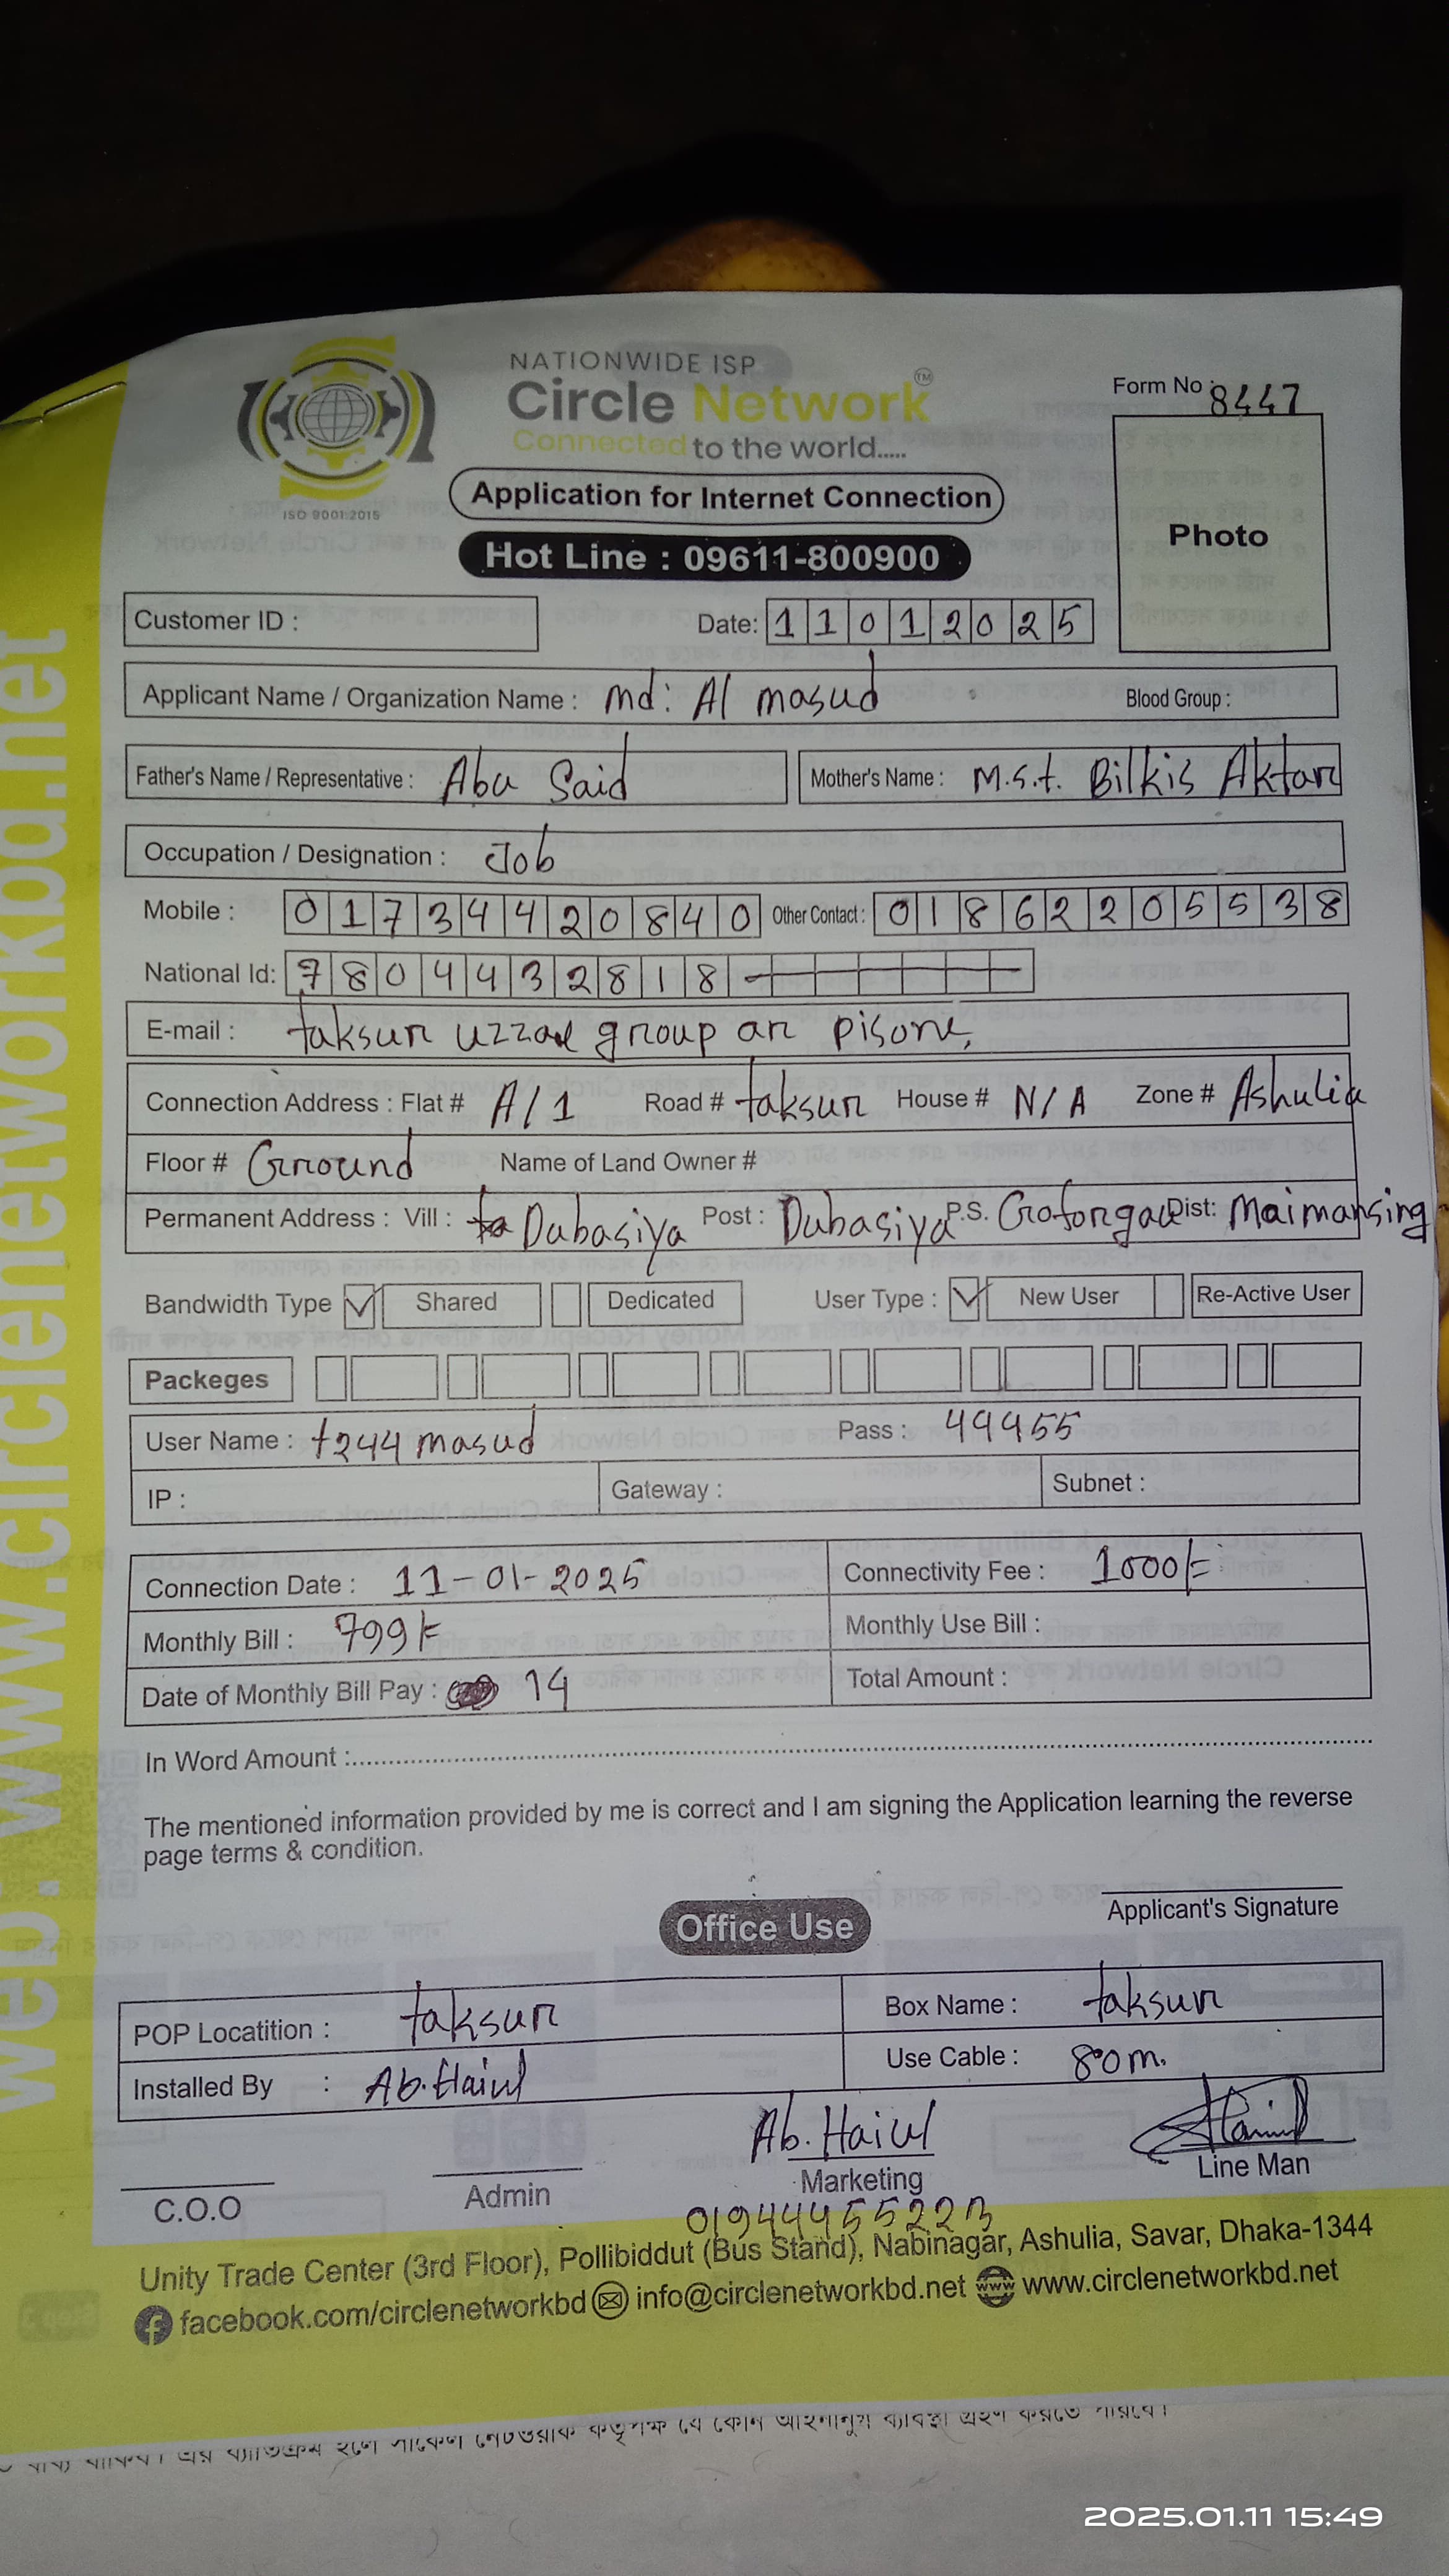 NATIONWIDE ISP
Circle Network™
Connected to the world.....
ISO 9001:2015
Form No : 8447
Application for Internet Connection
Photo
Hot Line : 09611-800900
Customer ID :
Date: 11012025
Applicant Name / Organization Name : md: Al masud Blood Group :
Father's Name / Representative : Abu Said Mother's Name : M.s.t. Bilkis Aktar
Occupation / Designation : Job
Mobile : 01734420840 Other Contact : 01862205538
National Id: 7804432818
E-mail : taksur uzzal group ar pisone,
Connection Address : Flat # A/1 Road # taksur House # N/A Zone # Ashulia
Floor # Ground Name of Land Owner #
Permanent Address : Vill : Dubasiya Post : Dubasiya P.S. Goforgau Dist: Maimansing
Bandwidth Type Shared Dedicated User Type : New User Re-Active User
Packeges
User Name : t244masud Pass : 44455
IP : Gateway : Subnet :
Connection Date : 11-01-2025 Connectivity Fee : 1000/=
Monthly Bill : 799/= Monthly Use Bill :
Date of Monthly Bill Pay : 14 Total Amount :
In Word Amount :
The mentioned information provided by me is correct and I am signing the Application learning the reverse
page terms & condition.
Applicant's Signature
Office Use
POP Locatition : taksur Box Name : taksur
Installed By : Ab.Haiul Use Cable : 80m.
Ab.Haiul
C.O.O Admin Marketing Line Man
01944455223
Unity Trade Center (3rd Floor), Pollibiddut (Bus Stand), Nabinagar, Ashulia, Savar, Dhaka-1344
facebook.com/circlenetworkbd info@circlenetworkbd.net www.circlenetworkbd.net
web: www.circlenetworkbd.net
2025.01.11 15:49